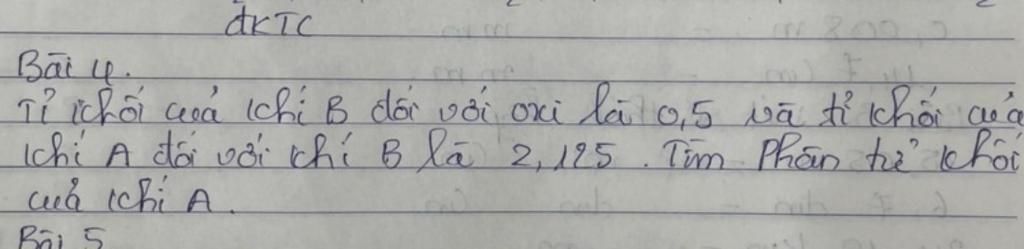 đKTC
Bài 4.
Tỉ khối của khí B đối với oxi là 0,5 và tỉ khối của
khí A đối với khí B là 2,125. Tìm Phân tử khối
của khí A.
Bài 5